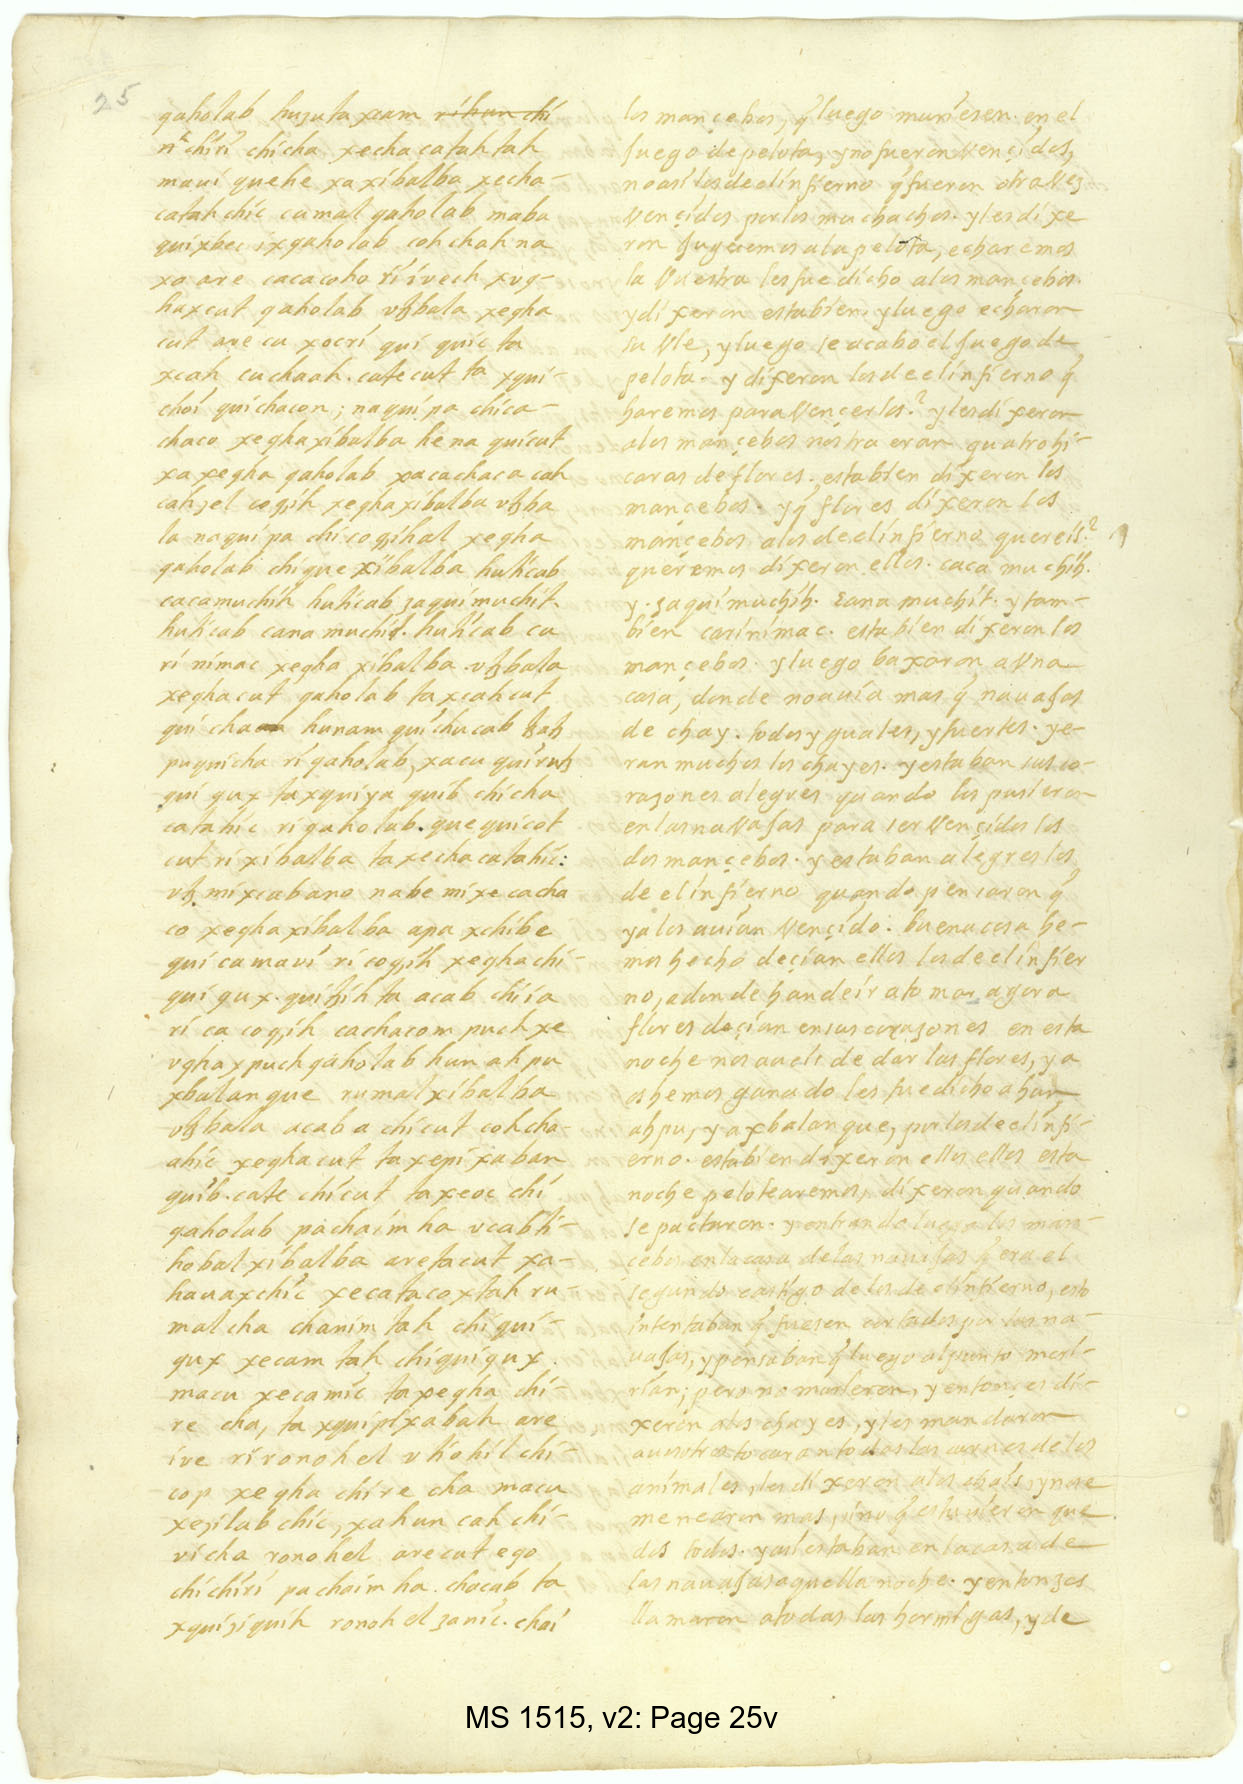 25
qaholab huzuta xcam rihun chi
ri chiri chicha xecha catah tah
maui quehe xa xibalba xecha-
catah chic cumal qaholab maba
quixbec ix qaholab coh chah na
xa are cacacoho ri ivech xvq-
haxcut qaholab vtzbala xegha
cut are cu xocri qui quic ta
xcah cuchaah. catecut ta xqui-
choi quichacon; naquipa chica-
chaco xegha xibalba he na quicut
xa xegha qaholab xacachaca cah
cahzel cogih xegha xibalba vtzba
la naqui pa chi cogihal xegha
qaholab chique xibalba huticab
cacamuchih huticab zaquimuchit.
huticab canamuchit. huticab ca
ri nimac xegha xibalba. vtzbala
xeghacut qaholab ta xcahcut
qui chaah hunam quichucab tzatz
puquicha ri qaholab, xacu quirutz
qui qux taxquiya quib chicha
catahic ri qaholab. que quicot
cut ri xibalba ta xechacatahic:
vtz mixcabano nabe mixe cacha
co xegha xibalba apa xchibe
qui camavi ri cogih xegha chi-
qui qux. quitzih ta acab chiia
ri ca cogih cachacom puch xe
vghax puch qaholab hun ah pu
xbalanque rumal xibalba
vtzbala acaba chicut cohcha-
ahic xeghacut ta xepixaban
quib. cate chicut taxeoc chi
qaholab pachaim ha vcabti-
hobal xibalba aretacut xa-
hauaxchic xecatacoxtah ru-
mal cha chanim tah chi qui-
qux xecam tah chiquiqux.
macu xecamic ta xegha chi-
re cha, ta xquipixabah are
ive ri ronohel vtiohil chi-
cop xegha chire cha macu
xezilab chic, xahun cah chi-
vi cha ronohel arecut ego
chichiri pachaim ha. chacab ta
xquiziquih ronohel zanic. chai
los mançebos, q̃ luego muriesen en el
juego de pelota, y no fueron vençidos,
no asi los de el infierno q̃ fueron otra vez
vençidos por los muchachos. y les dixe
ron juguemos a la pelota, echaremos
la vuestra les fue dicho a los mançebos.
y dixeron esta bien. y luego echaron
su vle, y luego se acabo el juego de
pelota. y dixeron los de el infierno q̃
haremos para vencerlos.? y les dixeron
a los mançebos nostra eran quatro hi-
caras de flores. esta bien dixeron los
mançebos. y q̃ flores dixeron los
mançebos a los de el infierno quereis?
queremos dixeron ellos. caca muchih.
y. zaquimuchih. cana muchit. y tam-
bien carinimac. esta bien dixeron los
mançebos. y luego baxaron a vna
casa, donde no auia mas q̃ nauajas
de chay. todos yguales, y fuertes. y e-
ran muchos los chayes. y estaban sus co-
razones alegres quando los pusieron
en las navajas para ser vençidos los
dos mançebos. y estaban alegres los
de el infierno quando pensaron q̃
ya los auian vençido. buena cosa he-
mos hecho deçian ellos los de el infier
no, adonde han de ir a tomar agora
flores deçian en sus corazones en esta
noche nos aueis de dar las flores, ya
os hemos ganado les fue dicho a hun
ahpu, y a xbalanque, por los de el infi-
erno. esta bien dixeron ellos ellos esta
noche pelotearemos, dixeron quando
se pactaron. y entrando luego los man-
cebos en la casa de las nauajas q̃ era el
segundo castigo de los de el infierno, esto
intentaban q̃ fuesen cortados por las na-
uajas, y pensaban q̃ luego al punto mori-
rian; pero no murieron, y entonçes di-
xeron a los chayes, y les mandaron
a vosotros tocaran todas las carnes de los
animales, les dixeron a los chais, y no se
menearon mas, sino q̃ estuvieron que
dos todos. y asi estaban en la casa de
las nauajas aquella noche. y entonzes
llamaron a todas las hormigas, y de
MS 1515, v2: Page 25v